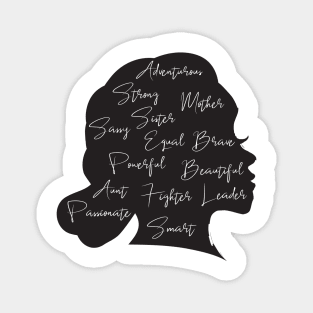 Adventurous
Strong Mother
Sister
Sassy
Equal Brave
Powerful Beautiful
Aunt Fighter Leader
Passionate
Smart